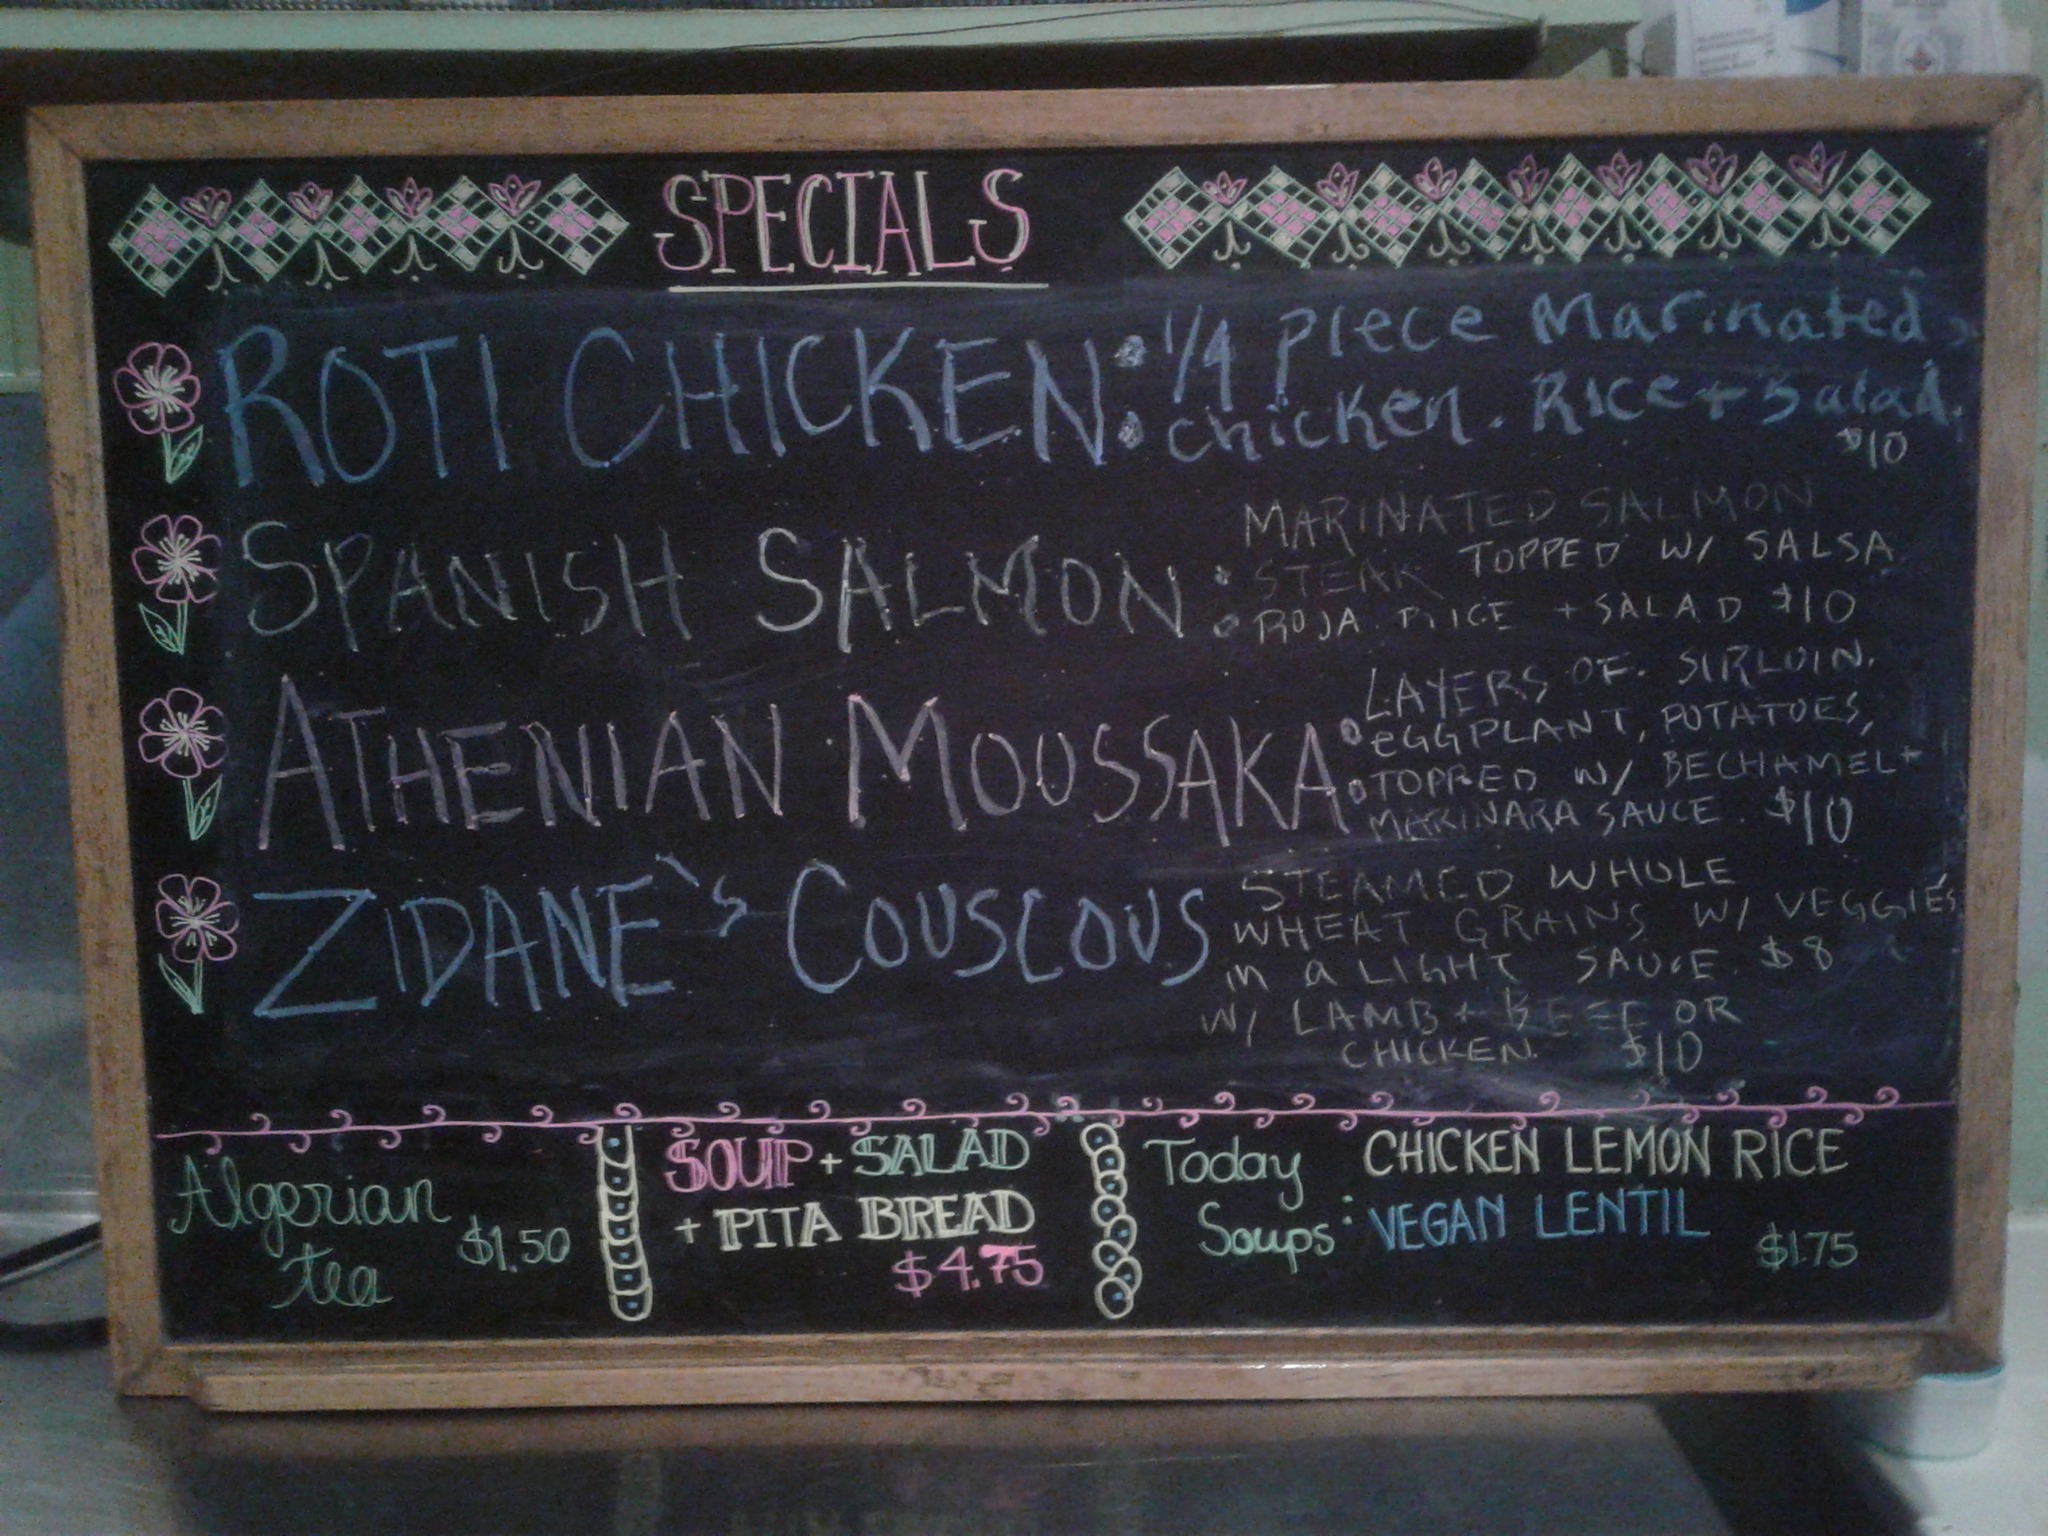 SPECIALS
ROTI CHICKEN: 1/4 Piece Marinated
chicken. Rice + Salad.
$10
SPANISH SALMON: MARINATED SALMON
STEAK TOPPED W/ SALSA
ROJA. RICE + SALAD $10
ATHENIAN MOUSSAKA: LAYERS OF. SIRLOIN.
eGGPLANT, POTATOES,
TOPPED W/ BECHAMEL +
MARINARA SAUCE. $10
ZIDANE`s COUSCOUS STEAMED WHOLE
WHEAT GRAINS W/ VEGGIES
in a LIGHT SAUCE. $8
W/ LAMB + BEEF OR
CHICKEN. $10
Algerian
tea $1.50
SOUP + SALAD
+ PITA BREAD
$4.75
Today Soups: CHICKEN LEMON RICE
VEGAN LENTIL
$1.75